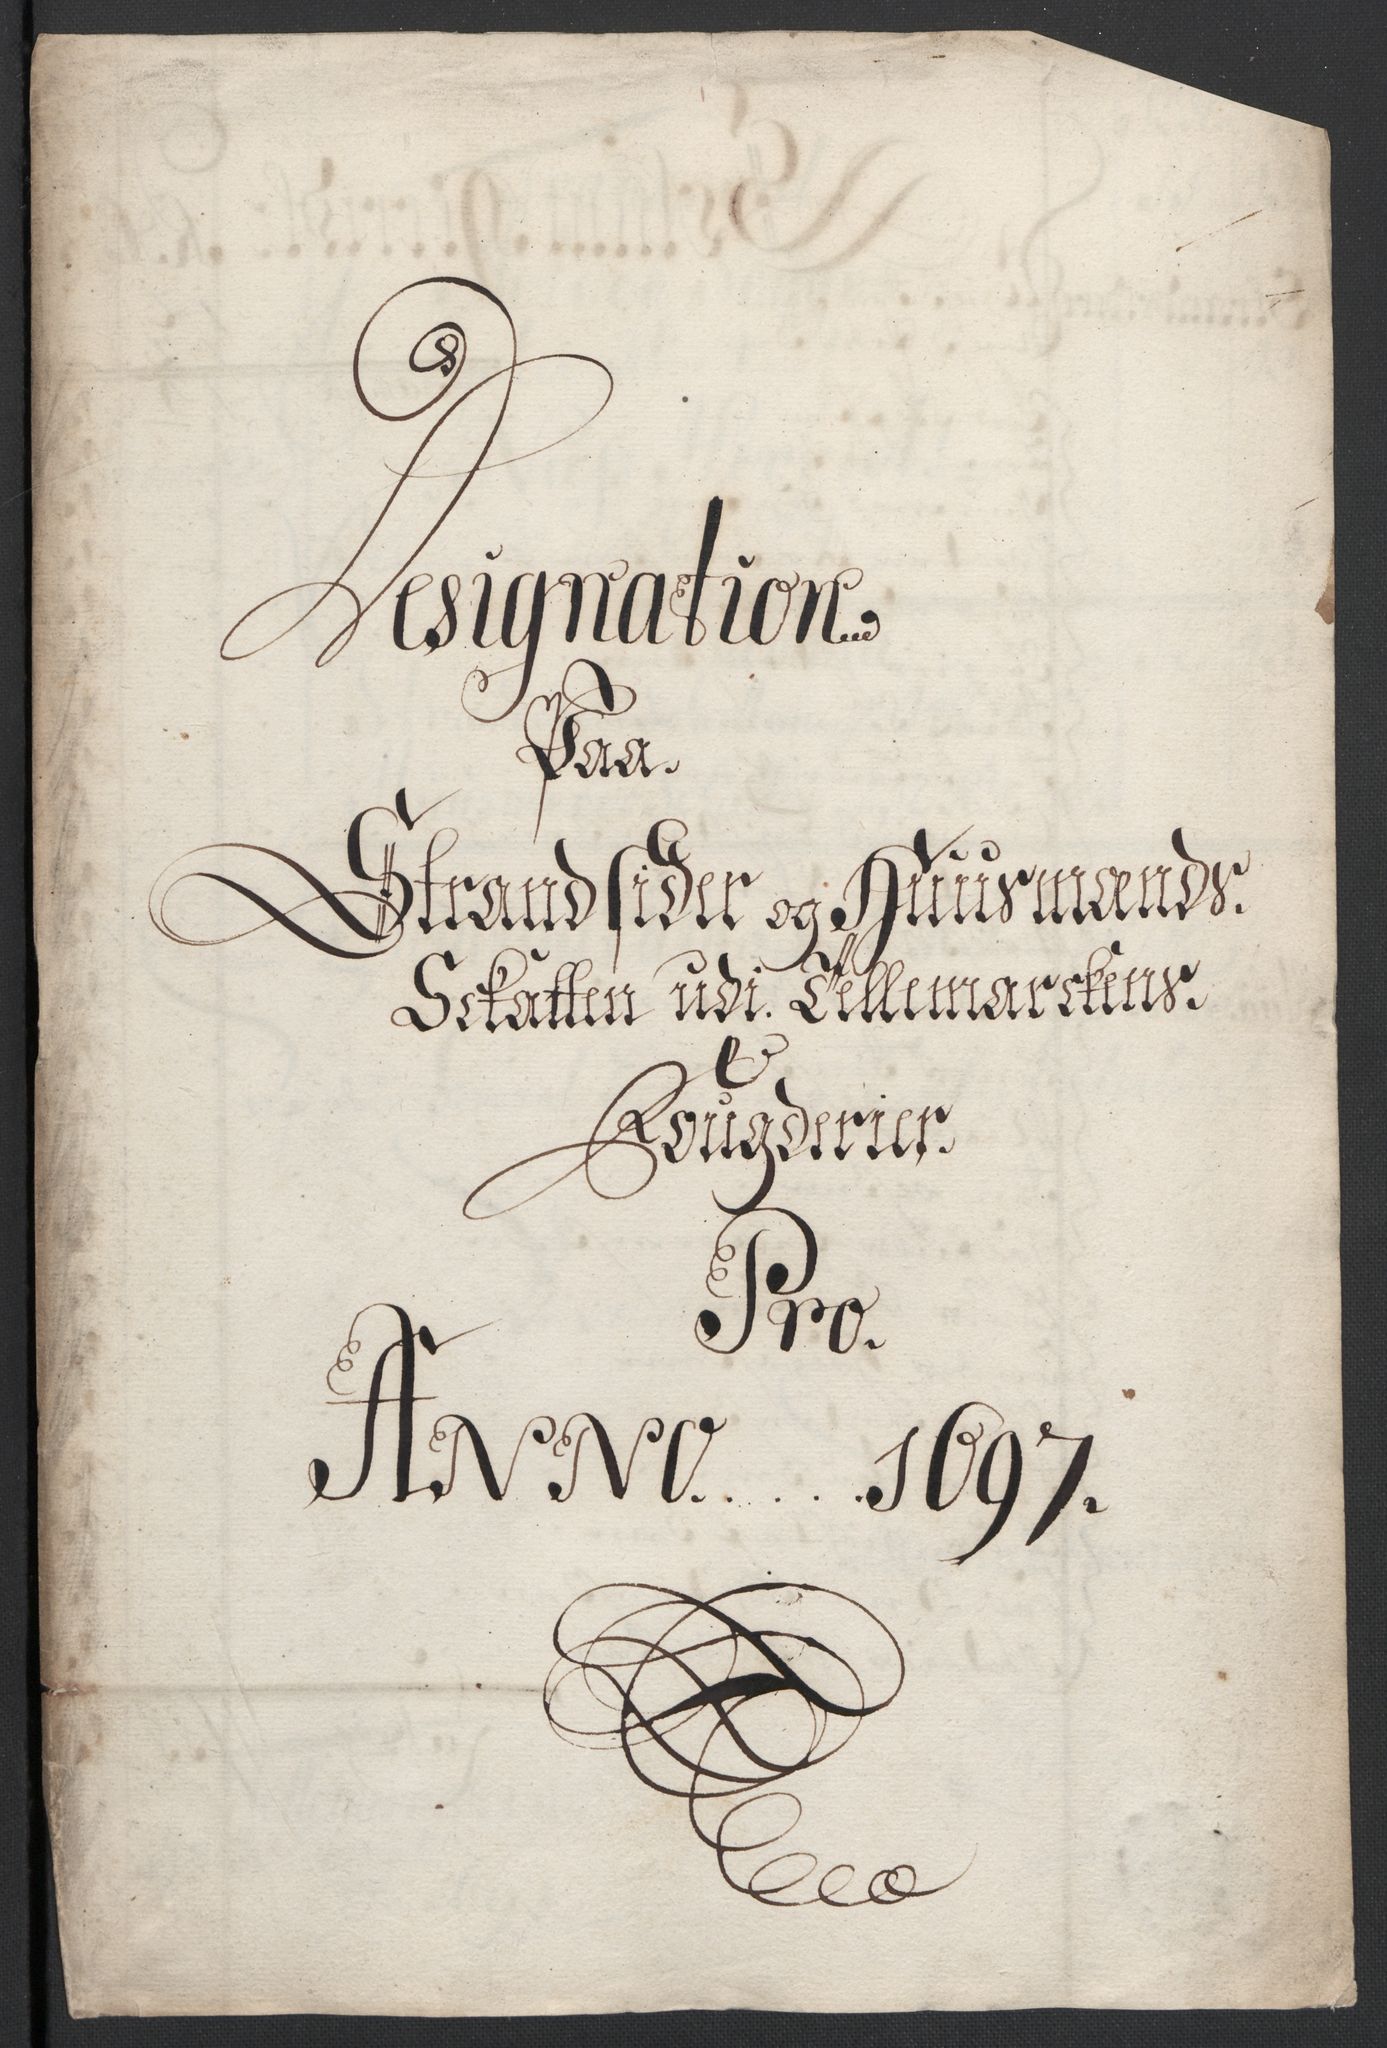 Designation
Paa.
Strandsider og Huusmænds.
Sckatten udi. Tellemarckens.
Fougderier.
Pro.
Anno. .... 1697.